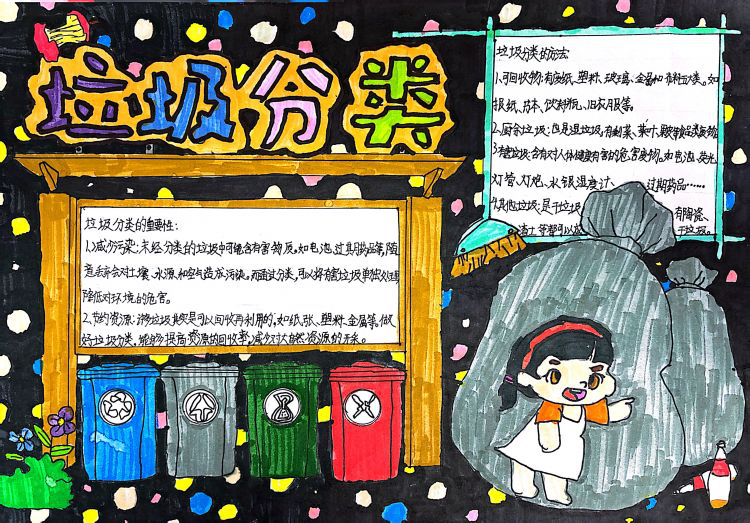 垃圾分类
垃圾分类的重要性:
1.减少污染:未经分类的垃圾中可能含有害物质。如电池、过期药品等,随
意丢弃会对土壤、水源和空气造成污染。而通过分类,可以将有害垃圾单独处理
降低对环境的危害。
2.节约资源:许多垃圾其实是可以回收再利用的,如纸张、塑料、金属等。做
好垃圾分类,能够提高资源的回收率,减少对大自然资源的开采。
垃圾分类的方法
1.可回收物:有废纸、塑料、玻璃、金属和布料五类。如
报纸、书本、饮料瓶、旧衣服等。
2.厨余垃圾:也是湿垃圾,有剩菜、菜叶、
3.有害垃圾:含有对人体健康有害的危害废物。如电池、荧光
灯管、灯炮、水银温度计、过期药品……
4.其他垃圾:是干垃圾 有陶瓷、
渣土 等都可以 干垃圾。